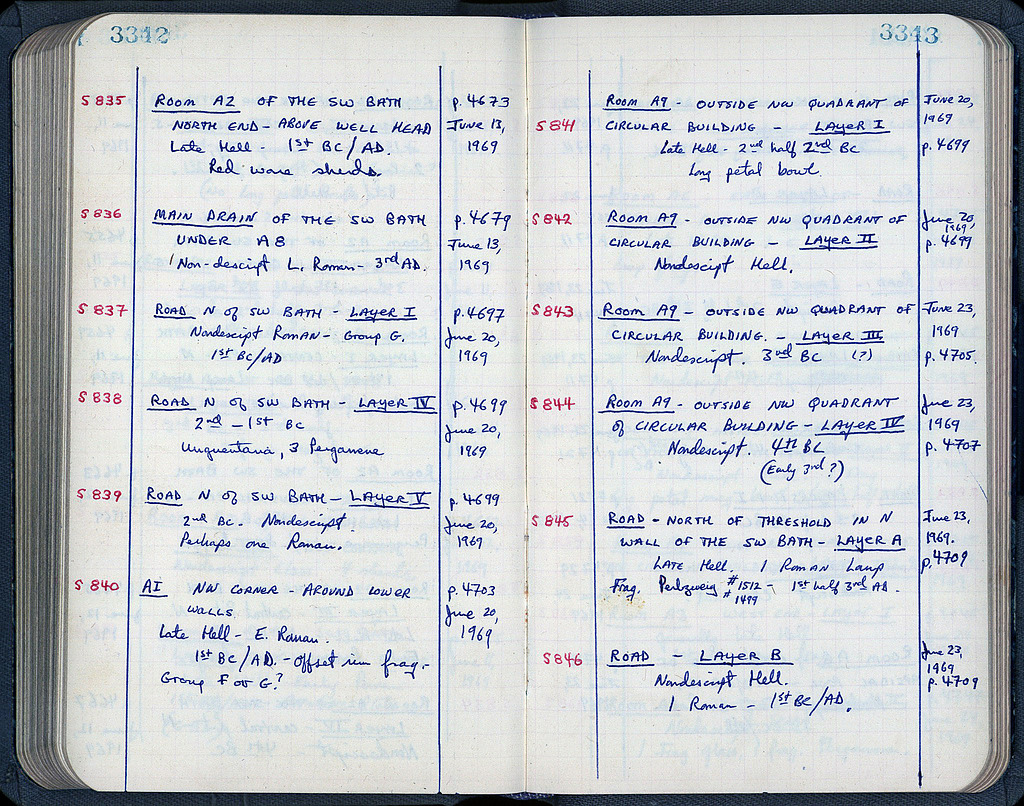 3342
S 835 ROOM A2 OF THE SW BATH p. 4673
NORTH END - ABOVE WELL HEAD June 13,
Late Hell - 1st BC/AD. 1969
Red ware sherds.
S 836 MAIN DRAIN OF THE SW BATH p. 4679
UNDER A8 June 13,
Non-descript L. Roman - 3rd AD. 1969
S 837 ROAD N OF SW BATH - LAYER I p. 4697
Nondescript Roman - Group G. June 20,
1st BC/AD 1969
S 838 ROAD N OF SW BATH - LAYER IV p. 4699
2nd - 1st BC June 20,
Unguentaria, 3 Pergamene 1969
S 839 ROAD N OF SW BATH - LAYER V p. 4699
2nd BC - Nondescript. June 20,
Perhaps one Roman. 1969
S 840 A1 NW CORNER - AROUND LOWER p. 4703
WALLS. June 20,
Late Hell - E. Roman. 1969
1st BC/AD. - Offset rim frag.
Group F or G?
3343
ROOM A9 - OUTSIDE NW QUADRANT OF June 20,
S 841 CIRCULAR BUILDING - LAYER I 1969
Late Hell - 2nd half 2nd BC p. 4699
Long petal bowl.
S 842 ROOM A9 - OUTSIDE NW QUADRANT OF June 20,
1969
CIRCULAR BUILDING - LAYER II p. 4699
Nondescript Hell.
S 843 ROOM A9 - OUTSIDE NW QUADRANT OF June 23,
CIRCULAR BUILDING. - LAYER III 1969
Nondescript. 3rd BC (?) p. 4705.
S 844 ROOM A9 - OUTSIDE NW QUADRANT June 23,
OF CIRCULAR BUILDING - LAYER IV 1969
Nondescript. 4th BC p. 4707
(Early 3rd?)
S 845 ROAD - NORTH OF THRESHOLD IN N June 23,
WALL OF THE SW BATH - LAYER A 1969.
LATE Hell. 1 Roman Lamp p. 4709
Frag. Perlzweig #1512 - 1st half 3rd AD.
#1499
S 846 ROAD - LAYER B June 23,
1969
Nondescript Hell. p. 4709
1 Roman - 1st BC/AD.